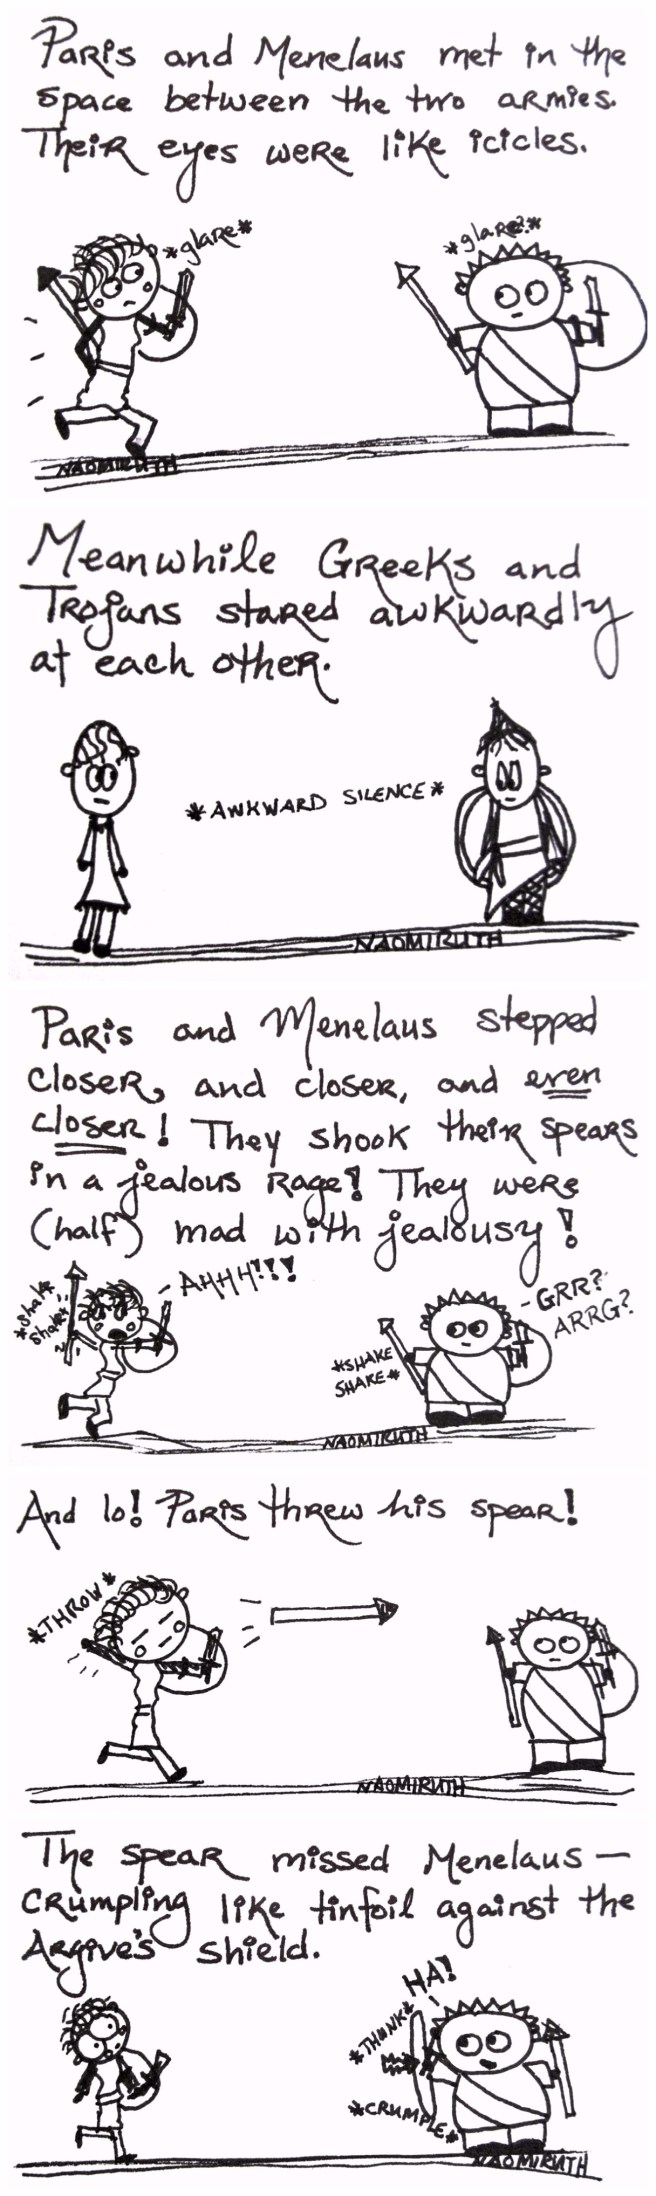 Paris and Menelaus met in the
space between the two armies.
Their eyes were like icicles.
*glare*
*glare?*
NAOMIRUTH
Meanwhile Greeks and
Trojans stared awkwardly
at each other.
*AWKWARD SILENCE*
NAOMIRUTH
Paris and Menelaus stepped
closer, and closer, and even
closer! They shook their spears
in a jealous rage! They were
(half) mad with jealousy!
*shake
shake*
- AHHH!!!
- GRR?
ARRG?
*SHAKE
SHAKE*
NAOMIRUTH
And lo! Paris threw his spear!
*THROW*
NAOMIRUTH
The spear missed Menelaus —
crumpling like tinfoil against the
Argive's shield.
HA!
*THUNK*
*CRUMPLE*
NAOMIRUTH